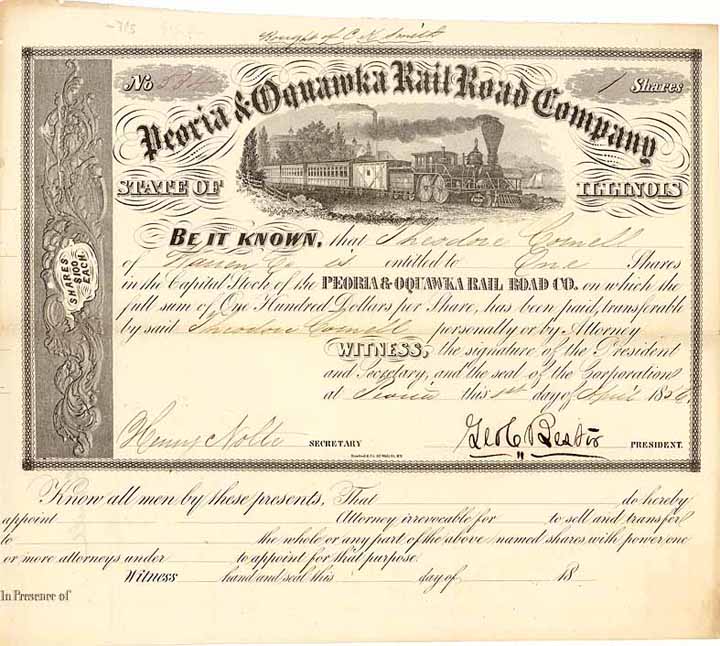 -715
Bought of C N Smith
No 534 1 Shares
Peoria & Oquawka Rail Road Company
STATE OF ILLINOIS
SHARES $100 EACH.
BE IT KNOWN, that Theodore Cornell
of Warren Co is entitled to One Shares
in the Capital Stock of the PEORIA & OQUAWKA RAIL ROAD CO. on which the
full sum of One Hundred Dollars per Share, has been paid, transferable
by said Theodore Cornell personally or by Attorney
WITNESS, the signature of the President
and Secretary, and the seal of the Corporation
at Peoria this 1st day of April 1856.
Henry Nolte SECRETARY Geo C Bestor PRESIDENT.
Know all men by these presents, That do hereby
appoint Attorney irrevocable for to sell and transfer
to the whole or any part of the above named shares with power one
or more attorneys under to appoint for that purpose.
Witness hand and seal this day of 18
In Presence of